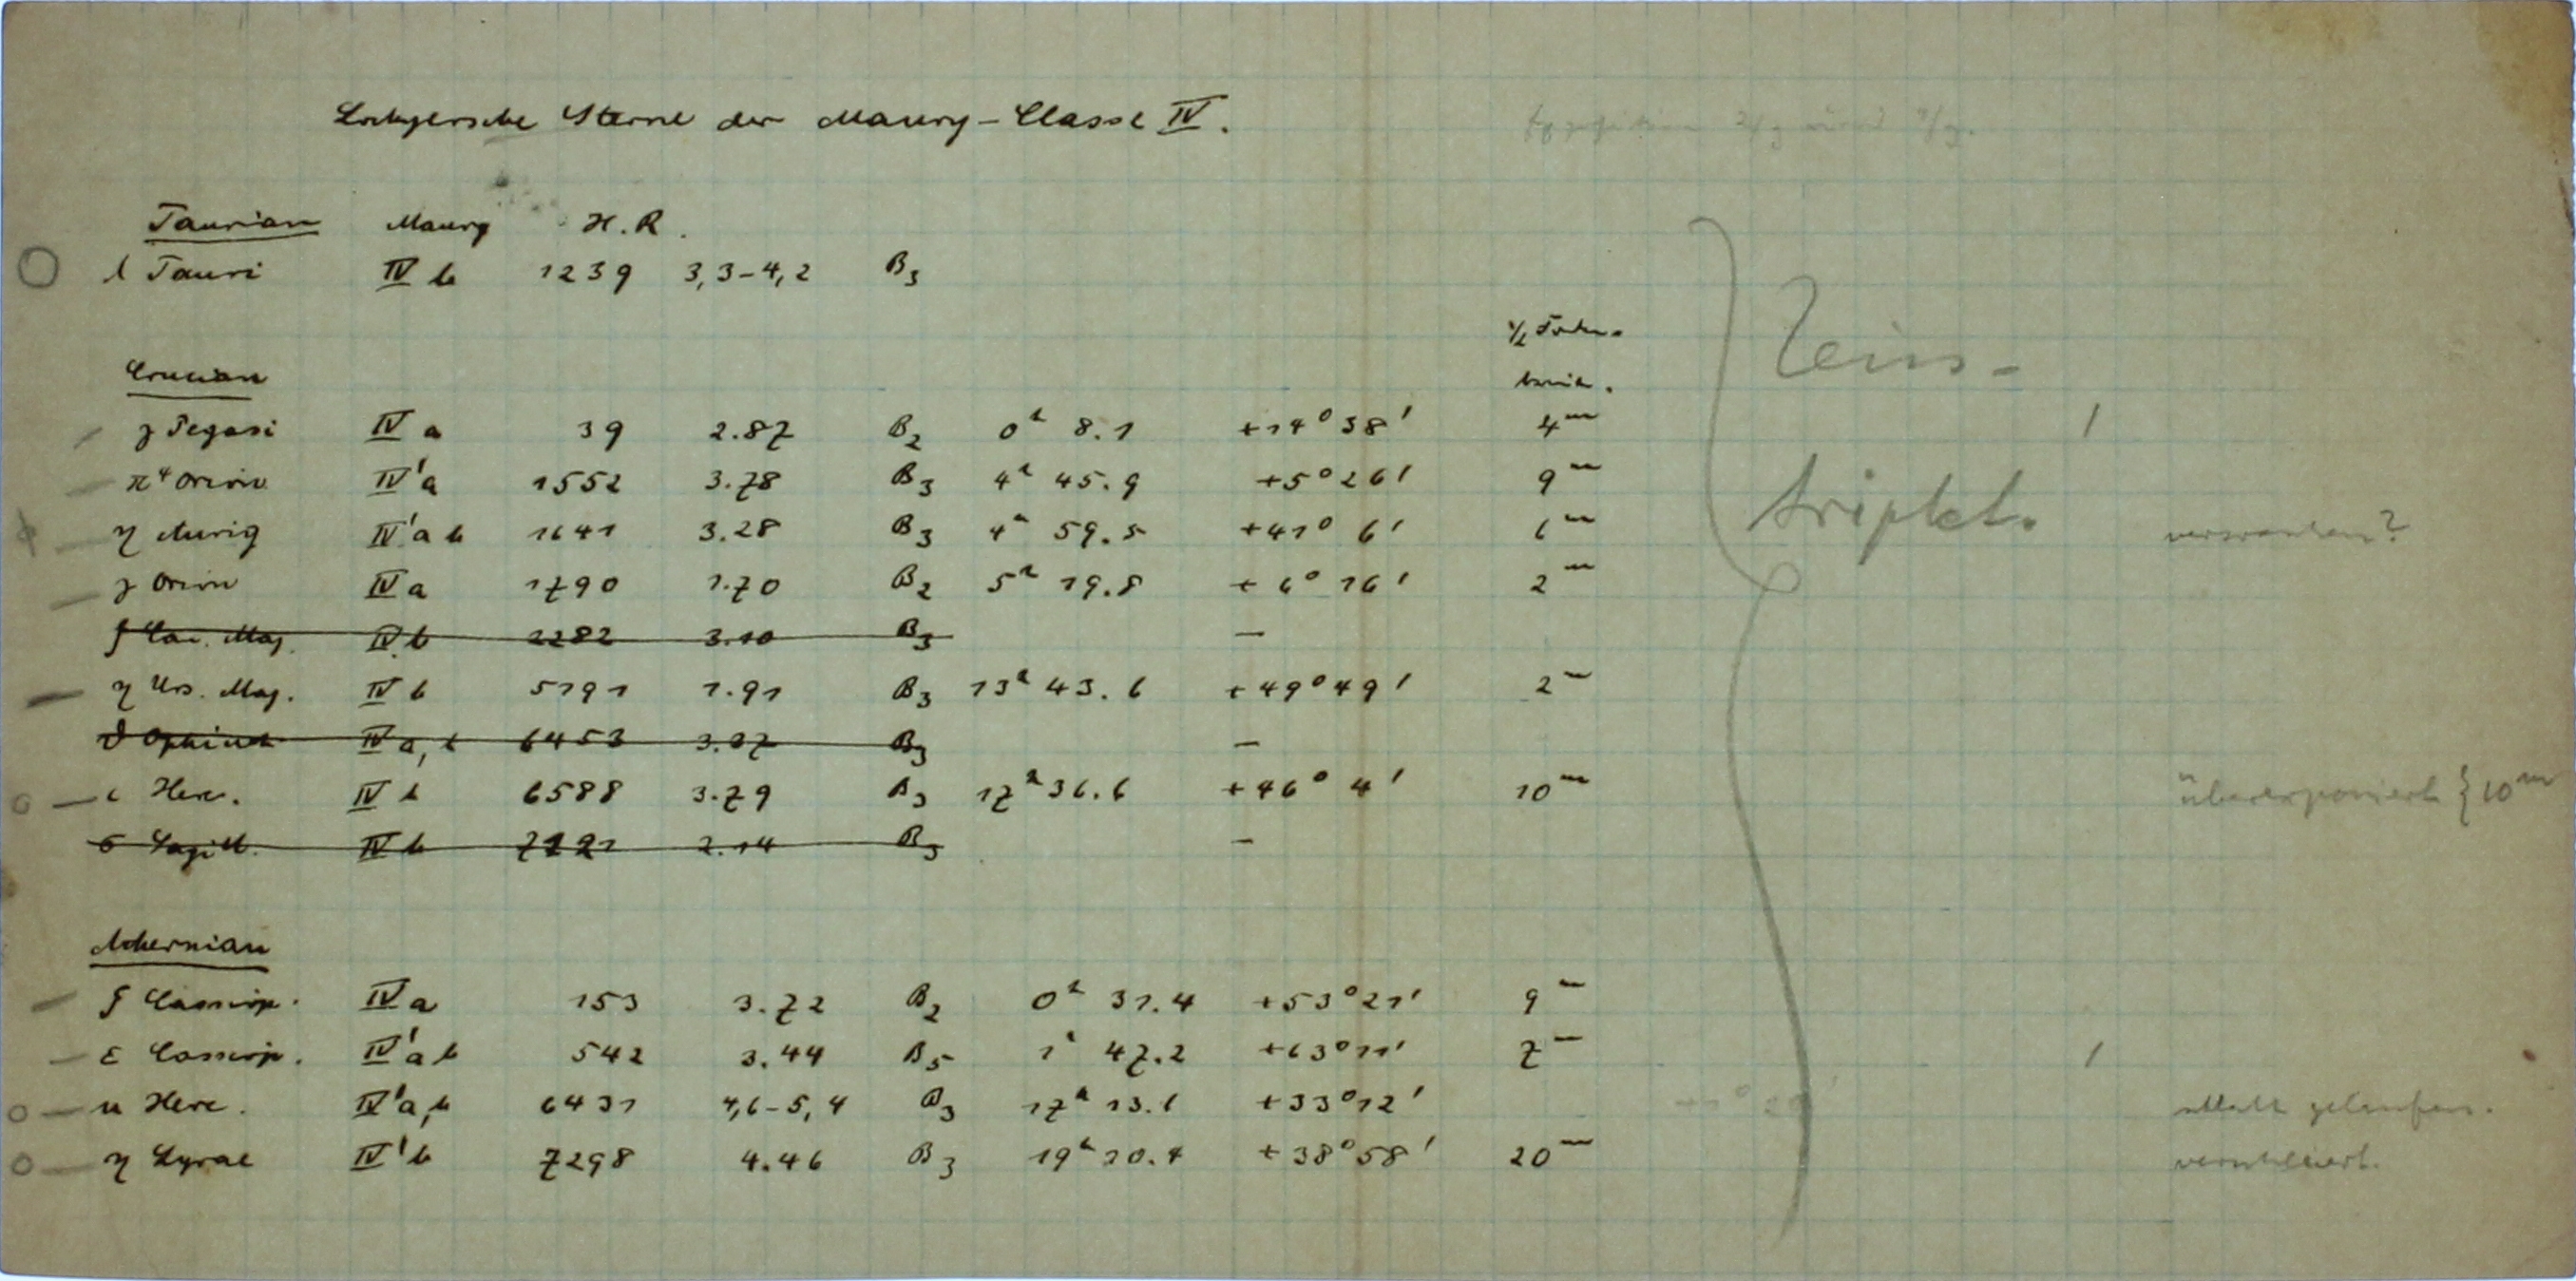 Lockyersche Sterne der Maury-Classe IV.
Taurian Maury H.R.
λ Tauri IV b 1239 3,3-4,2 B3
½ 
Crucian
γ Pegasi IV a 39 2.87 B2 0h 8.1 +14° 38' 4m
π4 Orion IV'a 1552 3.78 B3 4h 45.9 +5° 26' 9m
η Aurig IV'a b 1641 3.28 B3 4h 59.5 +41° 6' 6m
γ Orion IV a 1790 1.70 B2 5h 19.8 + 6° 16' 2m
ζ Can. Maj. IV b 2282 3.10 B3 —
η Urs. Maj. IV b 5191 1.91 B3 13h 43.6 +49° 49' 2m
ϑ Ophiuch IV a, b 6453 3.37 B3 —
ι Herc. IV b 6588 3.79 B3 17h 36.6 +46° 4' 10m
σ Sagitt. IV b 7121 2.14 B3 —
Achernian
ζ Cassiop. IV a 153 3.72 B2 0h 31.4 +53° 21' 9m
ε Cassiop. IV'a b 542 3.44 B5 1h 47.2 +63° 11' 7m
u Herc. IV'a, b 6431 4,6-5,4 B3 17h 13.6 +33° 12'
η Lyrae IV'b 7298 4.46 B3 19h 10.4 +38° 58' 20m
Zeiss-
triplet.
überexponiert } 10m
gelaufen.
verschleiert.